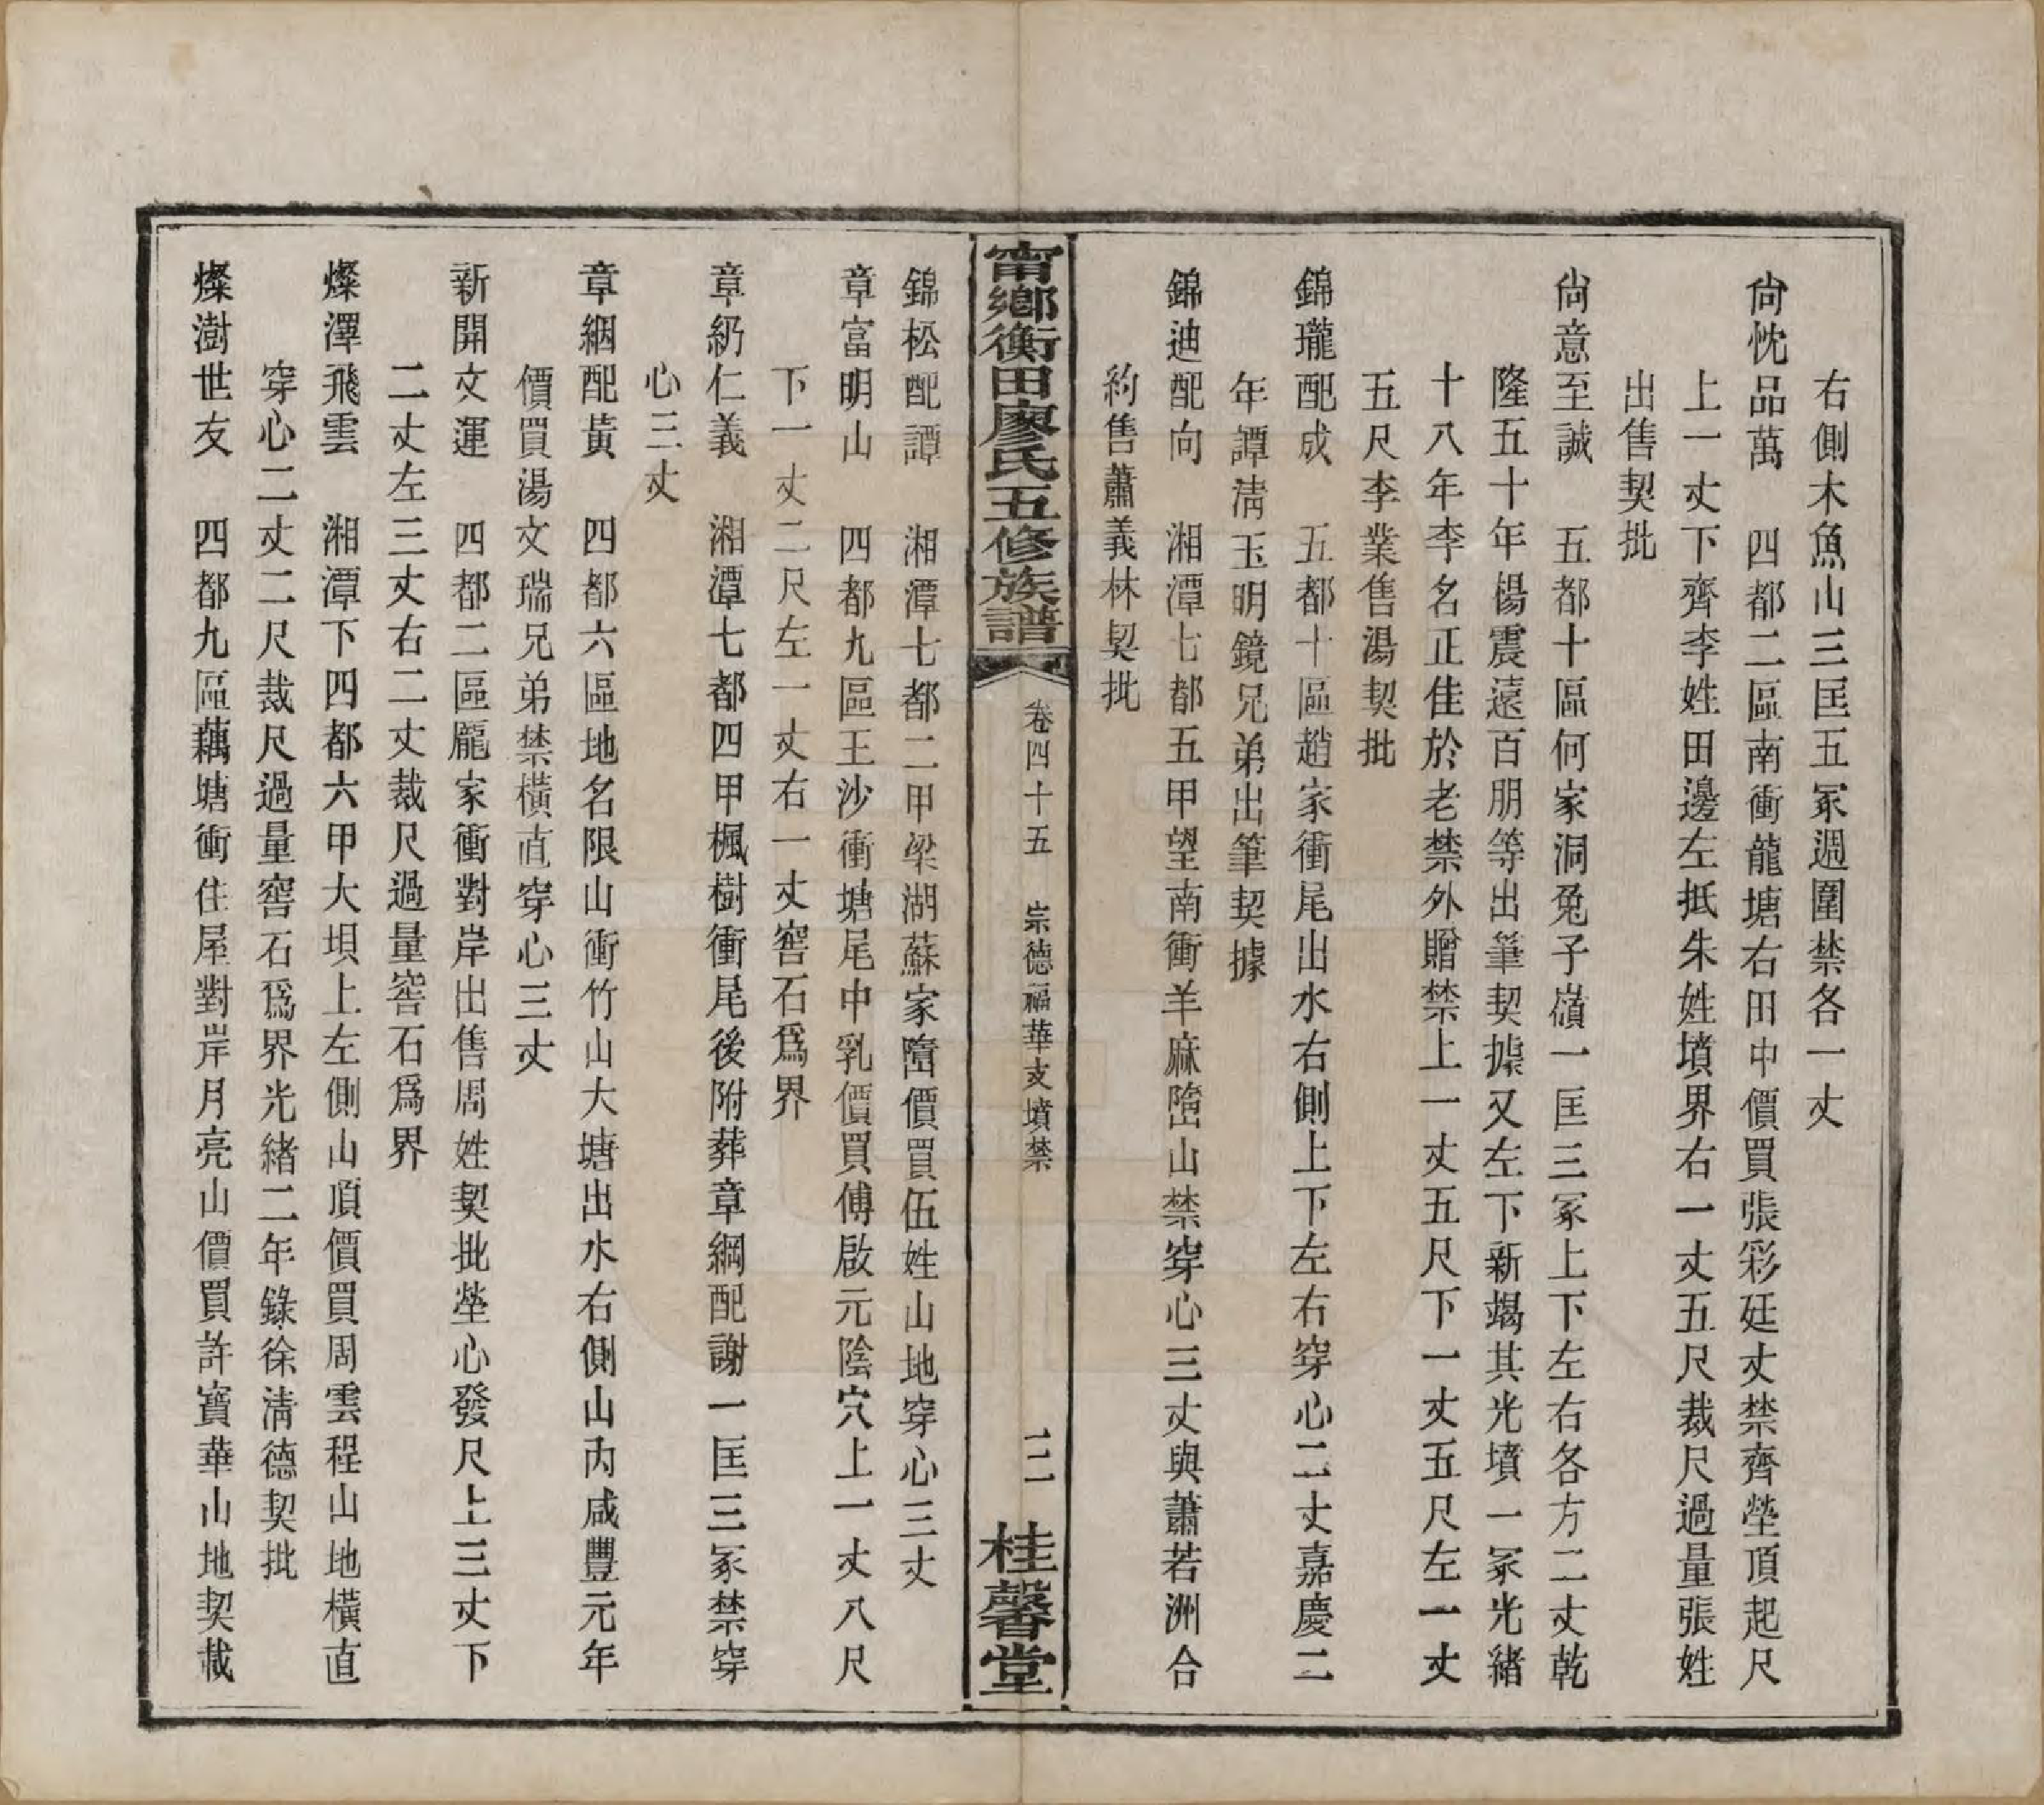 右側木魚山三匡五冢週圍禁各一丈
尙忱品萬　四都二區南衝龍塘右田中價買張彩廷丈禁齊塋頂起尺
上一丈下齊李姓田邊左抵朱姓墳界右一丈五尺裁尺過量張姓
出售契批
尙意至誠　五都十區何家洞兔子嶺一匡三冢上下左右各方二丈乾
隆五十年楊震遠百朋等出筆契據又左下新塲其光墳一冢光緒
十八年李名正佳於老禁外贈禁上一丈五尺下一丈五尺左一丈
五尺李業售湯契批
錦瓏配成　五都十區趙家衝尾出水右側上下左右穿心二丈嘉慶二
年譚淸玉明鏡兄弟出筆契據
錦迪配向　湘潭七都五甲望南衝羊麻㟷山禁穿心三丈與蕭若洲合
約售蕭義林契批
甯鄉衡田廖氏五修族譜　卷四十五　崇德福華支墳禁　三　桂馨堂
錦松配譚　湘潭七都二甲梁湖蘇家㟷價買伍姓山地穿心三丈
章富明山　四都九區王沙衝塘尾中乳價買傅啟元陰穴上一丈八尺
下一丈二尺左一丈右一丈窖石爲界
章紉仁義　湘潭七都四甲楓樹衝尾後附葬章綱配謝一匡三冢禁穿
心三丈
章絪配黃　四都六區地名限山衝竹山大塘出水右側山內咸豐元年
價買湯文瑞兄弟禁橫直穿心三丈
新開文運　四都二區龐家衝對岸出售周姓契批塋心發尺上三丈下
二丈左三丈右二丈裁尺過量窖石爲界
燦澤飛雲　湘潭下四都六甲大垻上左側山頂價買周雲程山地橫直
穿心二丈二尺裁尺過量窖石爲界光緒二年錄徐淸德契批
燦澍世友　四都九區藕塘衝住屋對岸月亮山價買許寶華山地契載